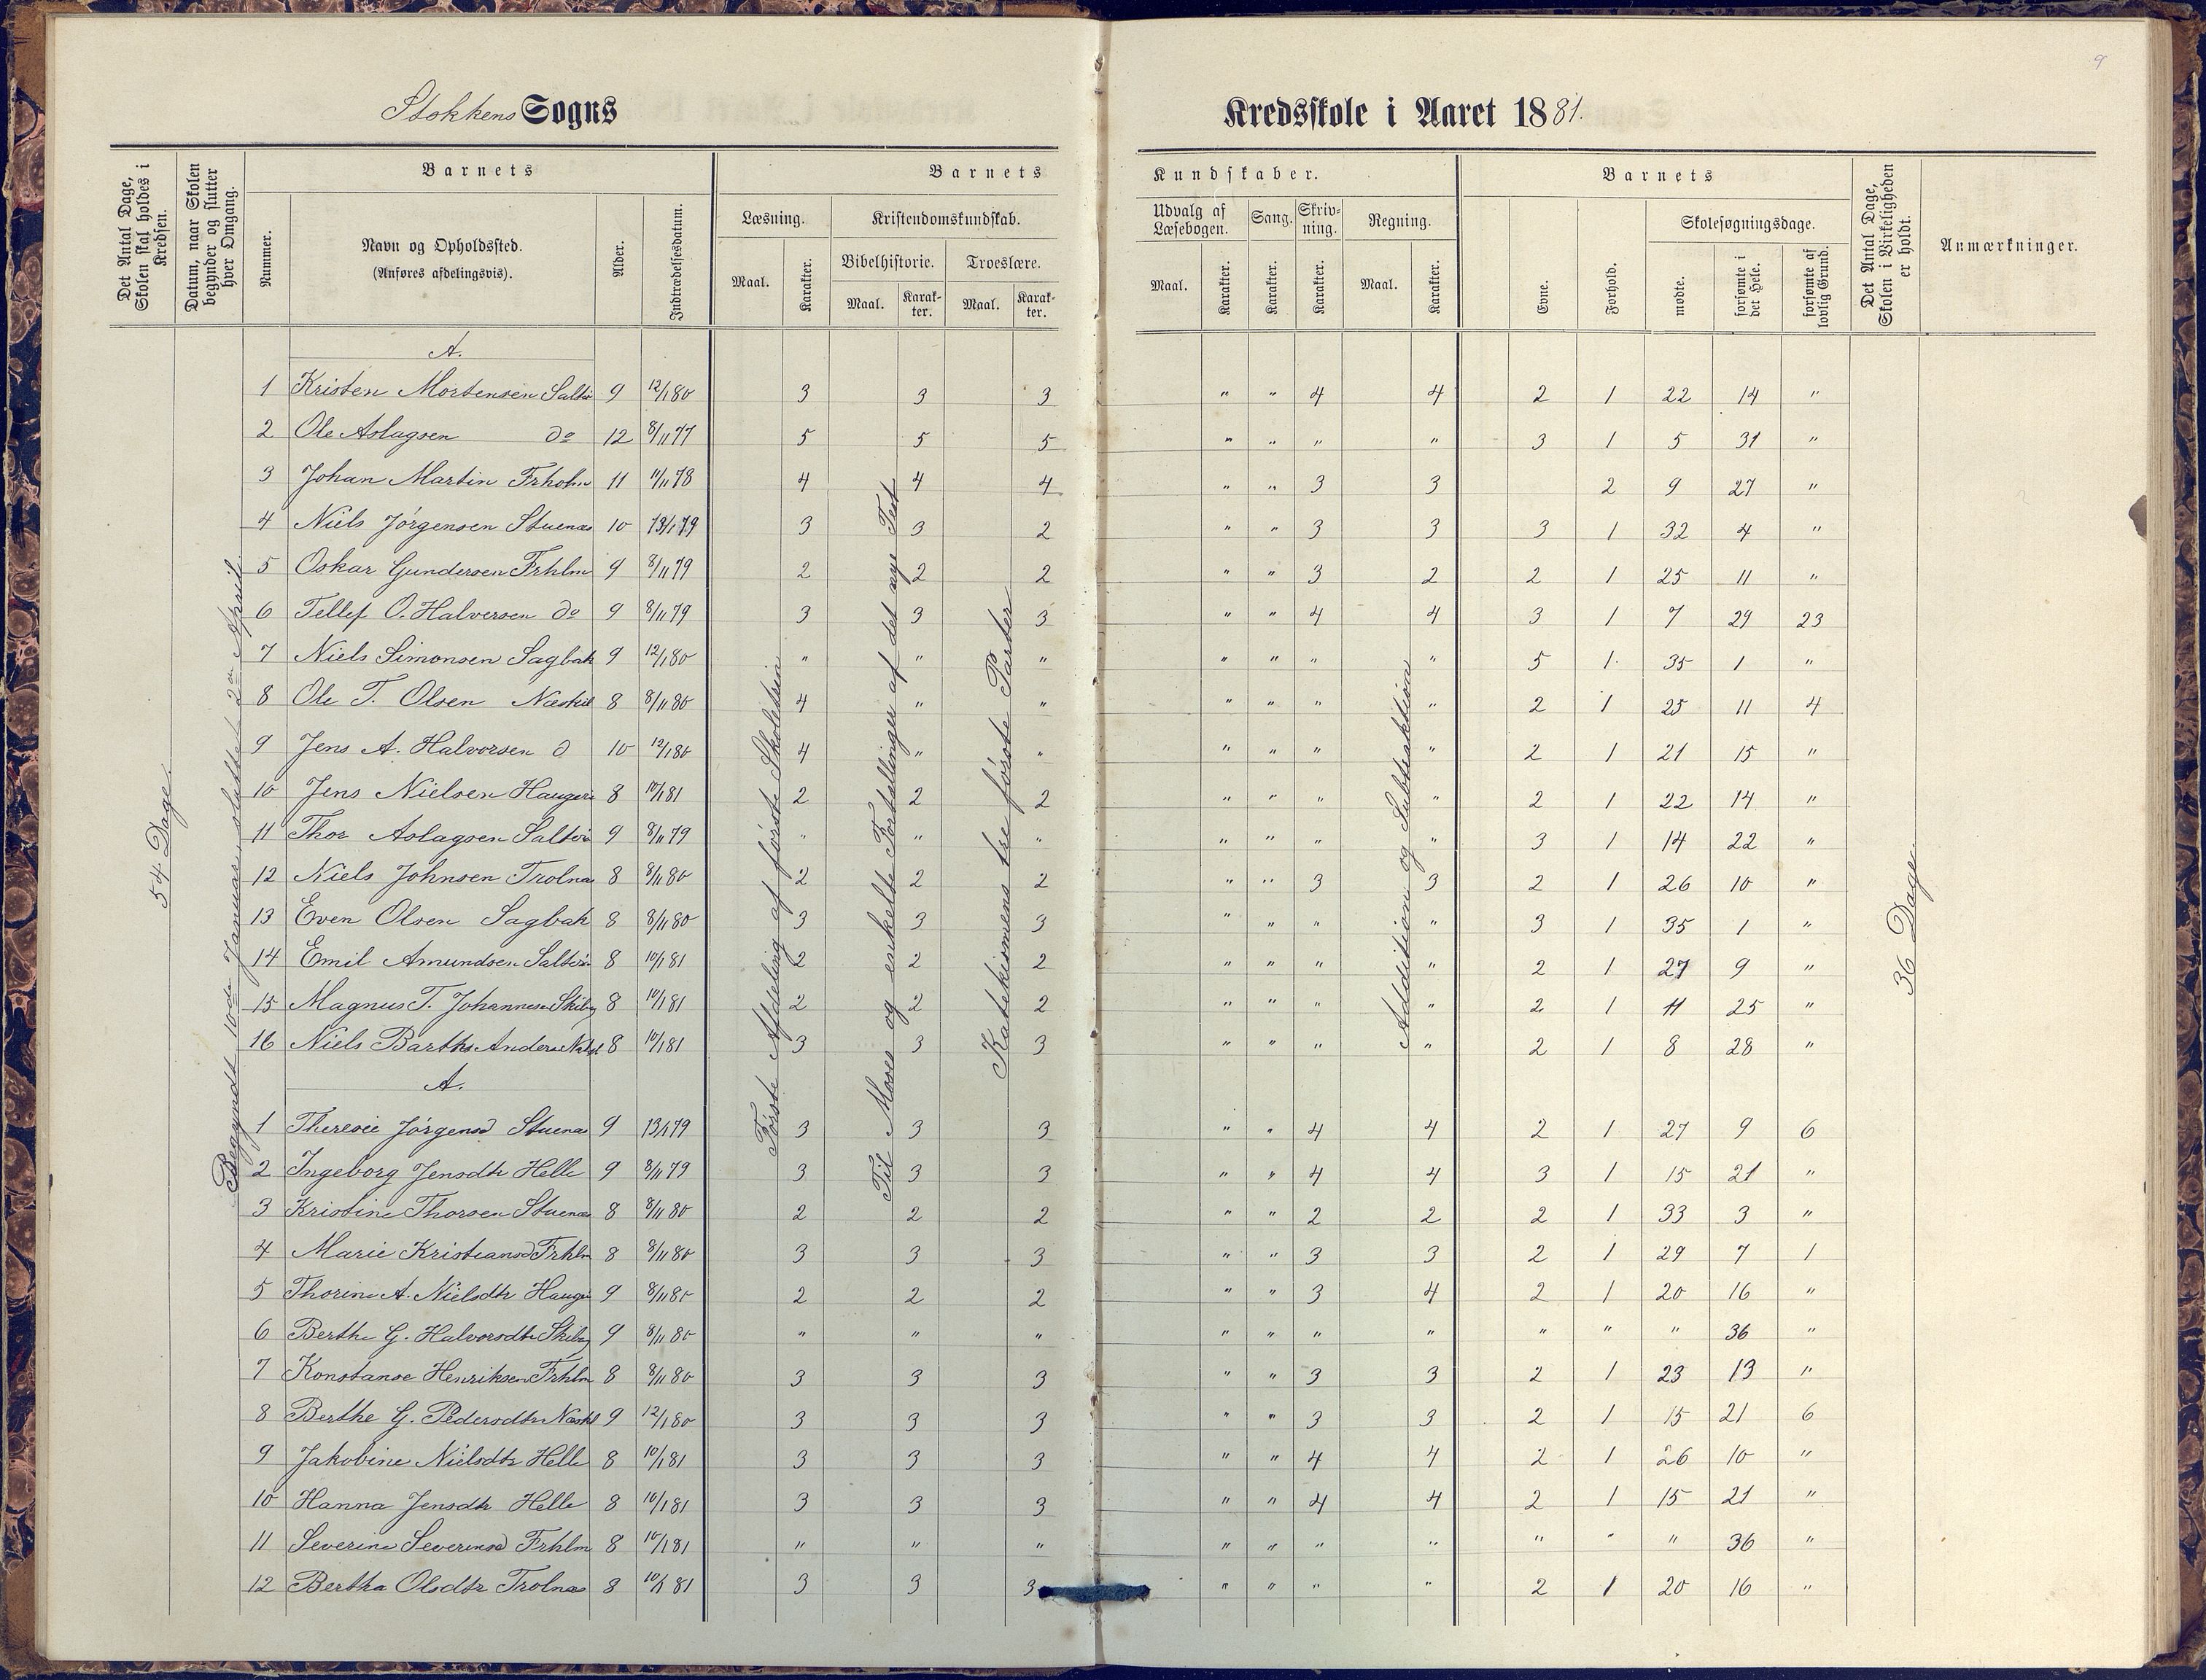 9
Stokkens Sogns Kredsskole i Aaret 1881.
Det Antal Dage, Skolen skal holdes i Kredsen.
Datum, naar Skolen begynder og slutter hver Omgang.
Barnets
Nummer.
Navn og Opholdssted.
(Anføres afdelingsvis).
Alder.
Indtrædelsesdatum.
Barnets Kundskaber.
Læsning.
Maal. Karakter.
Kristendomskundskab.
Bibelhistorie. Troeslære.
Maal. Karakter. Maal. Karakter.
Udvalg af Læsebogen. Sang. Skrivning. Regning.
Maal. Karakter. Karakter. Karakter. Maal. Karakter.
Barnets
Evne. Forhold.
Skolesøgningsdage.
mødte. forsømte i det Hele. forsømte af lovlig Grund.
Det Antal Dage, Skolen i Virkeligheden er holdt.
Anmærkninger.
54 Dage.
Begyndt 10de Januar, sluttet 2den April.
Første Afdeling af første Skoletrin
Til Moses og enkelte Fortællinger af det nye Test
Katekismens tre første Parter
Addition og Subtraktion
36 Dage.
A.
1 Kristen Mortensen 9 12/1 80 3 3 3 " " 4 4 2 1 22 14 "
2 Ole Aslagsen do 12 8/11 77 5 5 5 " " " " 3 1 5 31 "
3 Johan Martin Frholm 11 11/11 78 4 4 4 " " 3 3 2 9 27 "
4 Niels Jørgensen Stuenæs 10 13/1 79 3 3 2 " " 3 3 3 1 32 4 "
5 Oskar Gundersen Frhlm 9 8/11 79 2 2 2 " " 3 2 2 1 25 11 "
6 Tellef O. Halversen do 9 8/11 79 3 3 3 " " 4 4 3 1 7 29 23
7 Niels Simonsen Sagbak 9 12/1 80 " " " " " " " 5 1 35 1 "
8 Ole T. Olsen Næskil 8 8/11 80 4 " " " " " " 2 1 25 11 4
9 Jens A. Halvorsen d 10 12/1 80 4 " " " " " " 2 1 21 15 "
10 Jens Nielsen Haugen 8 10/1 81 2 2 2 " " " " 2 1 22 14 "
11 Thor Aslagsen 9 8/11 79 " " " " " " " 3 1 14 22 "
12 Niels Johnsen Trolnæs 8 8/11 80 2 2 2 " " 3 3 2 1 26 10 "
13 Even Olsen Sagbak 8 8/11 80 3 3 3 " " " " 3 1 35 1 "
14 Emil Amundsen 8 10/1 81 2 2 2 " " " " 2 1 27 9 "
15 Magnus T. Johannesen 8 10/1 81 2 2 2 " " " " 2 1 11 25 "
16 Niels Barths 8 10/1 81 3 3 3 " " " " 2 1 8 28 "
A.
1 Theresie Jørgensd Stuenæs 9 13/1 79 3 3 3 " " 4 4 2 1 27 9 6
2 Ingeborg Jensdtr Helle 9 8/11 79 3 3 3 " " 4 4 3 1 15 21 "
3 Kristine Thorsen Stuenæs 8 8/11 80 2 2 2 " " 2 2 2 1 33 3 "
4 Marie Kristiansd Frhlm 8 8/11 80 3 3 3 " " 3 3 2 1 29 7 1
5 Thorine A. Nielsdtr Haugen 9 8/11 80 2 2 2 " " 3 4 2 1 20 16 "
6 Berthe G. Halvorsdtr 9 8/11 80 " " " " " " " " " " 36 "
7 Konstanse Henriksen Frhlm 8 8/11 80 3 3 3 " " 3 3 2 1 23 13 "
8 Berthe G. Pedersdtr Næskl 9 12/1 80 3 3 3 " " 3 3 2 1 15 21 6
9 Jakobine Nielsdtr Helle 8 10/1 81 3 3 3 " " 4 4 2 1 26 10 "
10 Hanna Jensdtr Helle 8 10/1 81 3 3 3 " " 4 4 2 1 15 21 "
11 Severine Severinsd Frhlm 8 10/1 81 " " " " " " " " " " 36 "
12 Bertha Olsdtr Trolnæs 8 10/1 81 3 3 3 " " " " 2 1 20 16 "